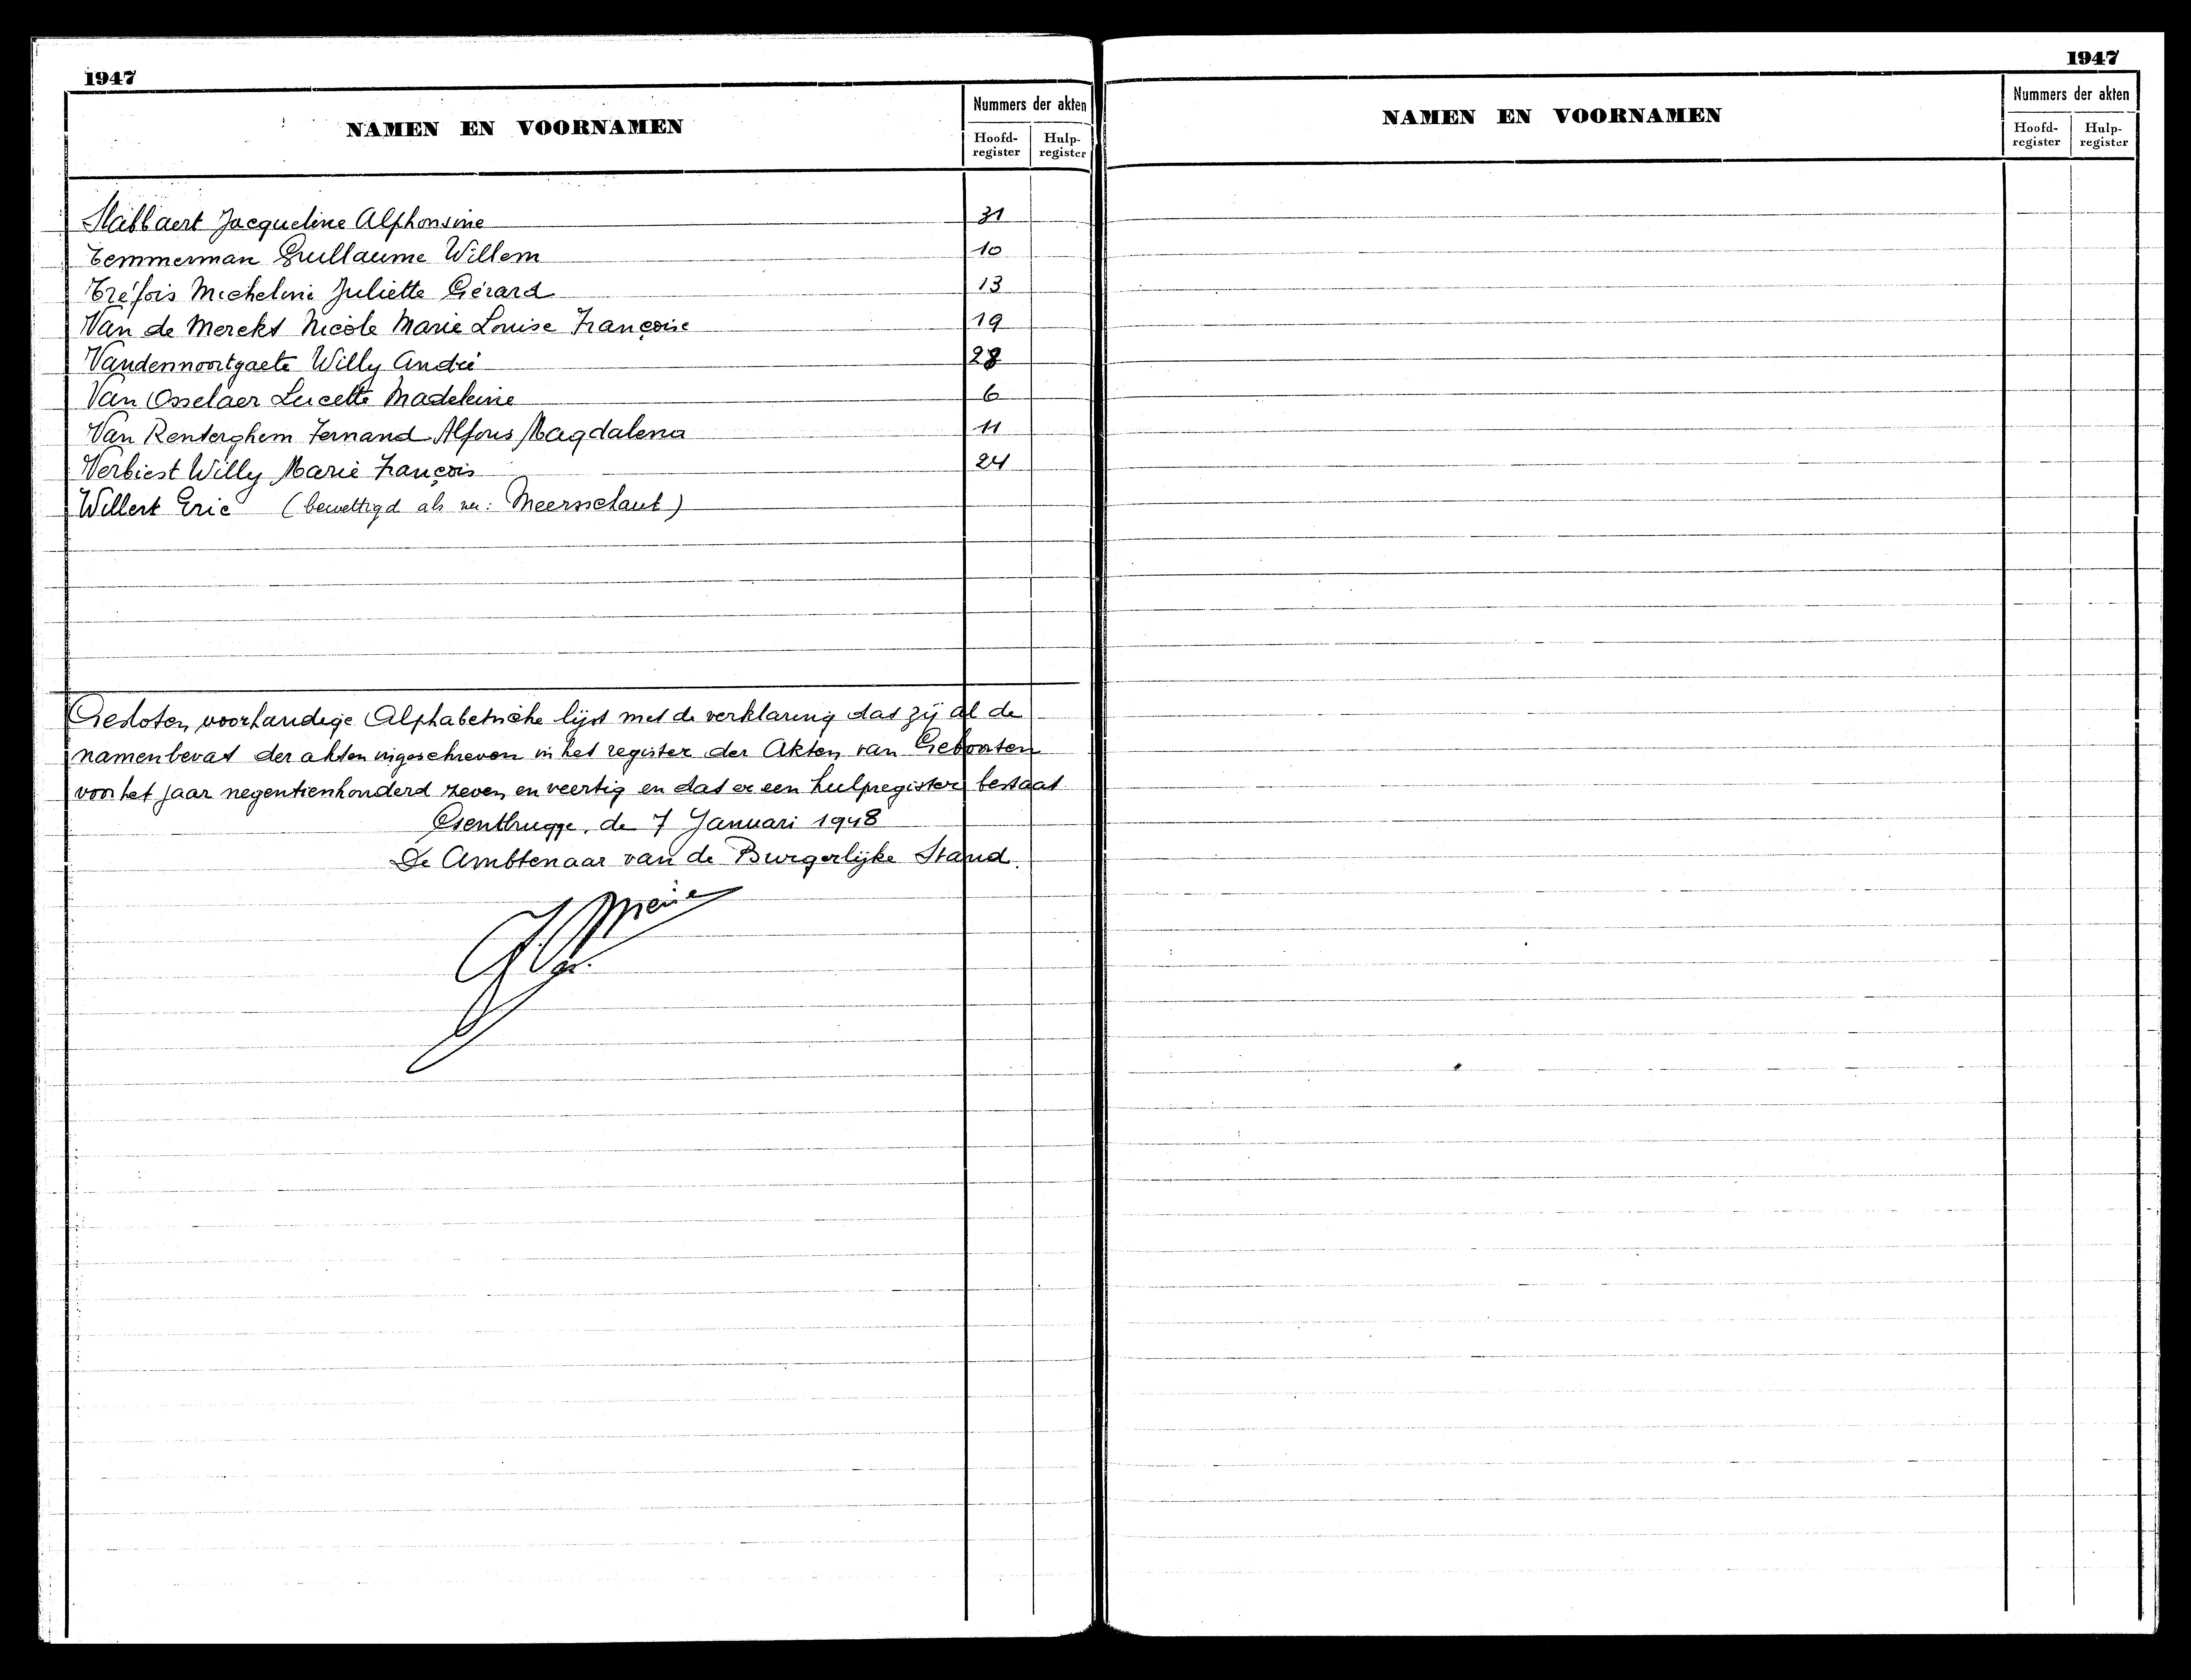 1947
NAMEN EN VOORNAMEN
Nummers der akten
Hoofd-register
Hulp-register
Stabbaert Jacqueline Alphonsine 31
Temmerman Guillaume Willem 10
Tréfois Micheline Juliette Gérard 13
Van de Merckt Nicole Marie Louise Françoise 19
Vandennoortgaete Willy André 28
Van Osselaer Lucette Madeleine 6
Van Renterghem Fernand Alfons Magdalena 11
Verbiest Willy Marie François 24
Willert Eric (bewettigd als nu: Meersschaut)
Gesloten voorhandige Alphabetische lijst met de verklaring dat zij al de
namen bevat der akten ingeschreven in het register der Akten van Geboorten
voor het jaar negentienhonderd zeven en veertig en dat er een hulpregister bestaat
Gentbrugge, de 7 Januari 1948
De Ambtenaar van de Burgerlijke Stand.
1947
NAMEN EN VOORNAMEN
Nummers der akten
Hoofd-register
Hulp-register